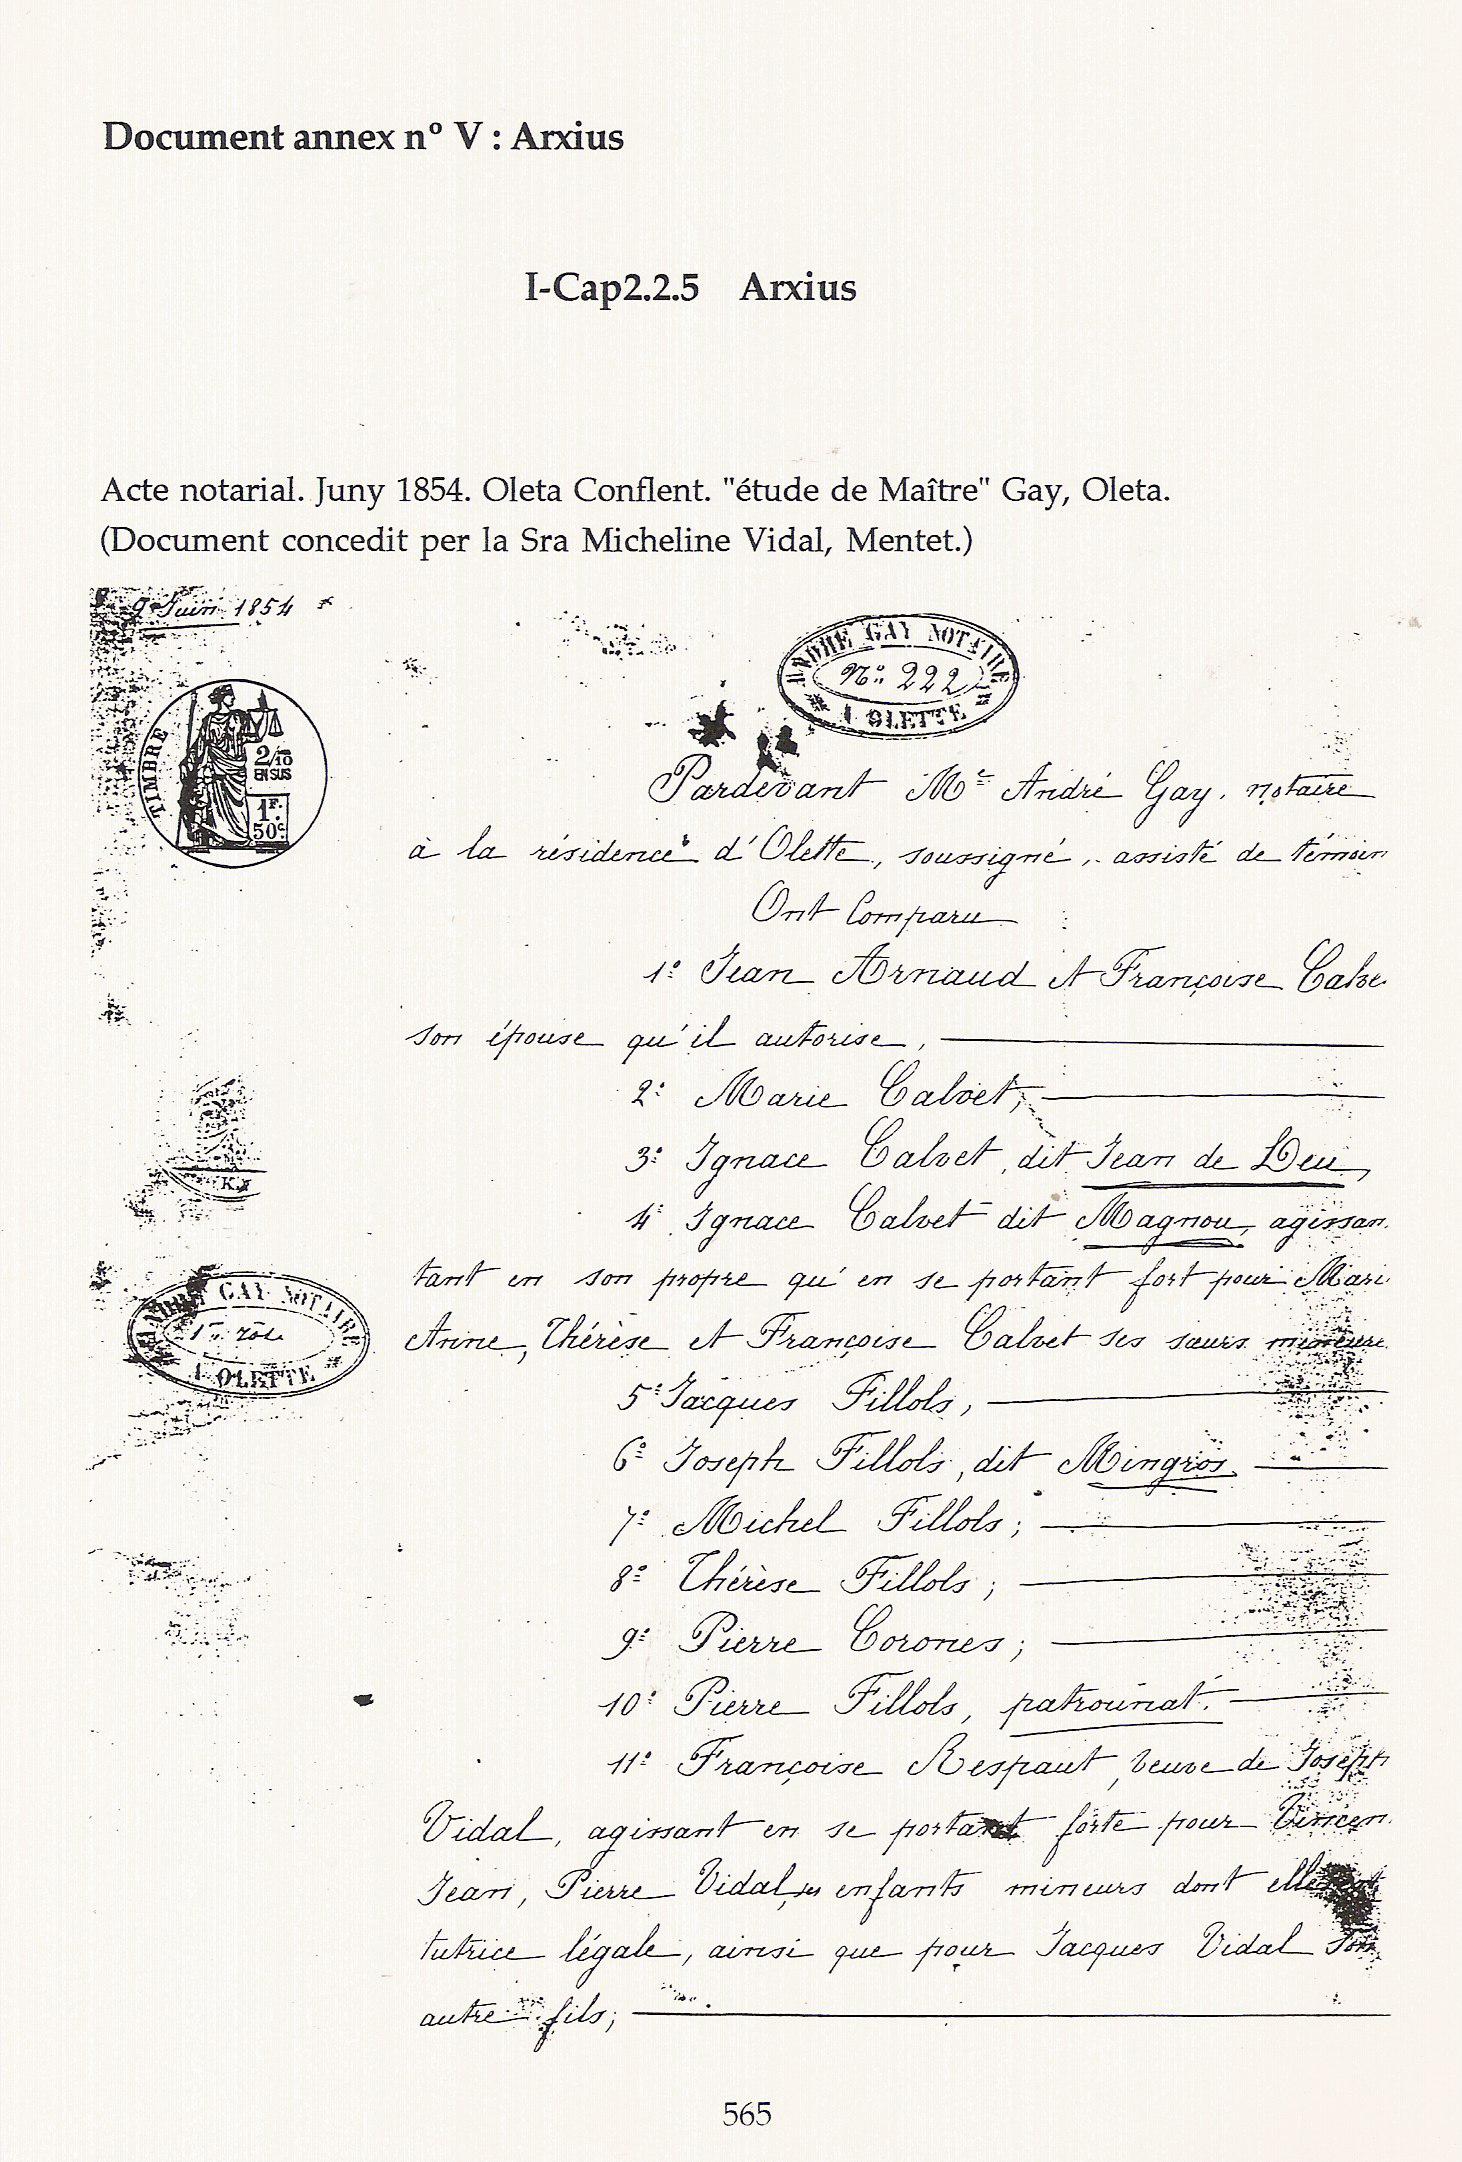 Document annex nº V : Arxius
I-Cap2.2.5 Arxius
Acte notarial. Juny 1854. Oleta Conflent. "étude de Maître" Gay, Oleta.
(Document concedit per la Sra Micheline Vidal, Mentet.)
9 Juin 1854
ANDRE GAY NOTAIRE
Nº 222
A OLETTE
TIMBRE
2/10
EN SUS
1F.
50c
Pardevant Me André Gay, notaire
à la résidence d'Olette, soussigné, assisté de témoin
Ont Comparu
1º Jean Arnaud et Françoise Calve
son épouse qu'il autorise,
2º Marie Calvet,
3º Ignace Calvet, dit Jean de Deu,
4º Ignace Calvet dit Magnou, agissan
tant en son propre qu'en se portant fort pour Mari
Anne, Thérèse et Françoise Calvet ses sœurs mineure
5º Jacques Fillols,
6º Joseph Fillols, dit Mingros
7º Michel Fillols;
8º Thérèse Fillols;
9º Pierre Corones;
10º Pierre Fillols, patrounat.
11º Françoise Respaut, veuve de Joseph
Vidal, agissant en se portant forte pour Vincen
Jean, Pierre Vidal, ses enfants mineurs dont elle est
tutrice légale, ainsi que pour Jacques Vidal son
autre fils;
ANDRE GAY NOTAIRE
1er rôle
A OLETTE
565